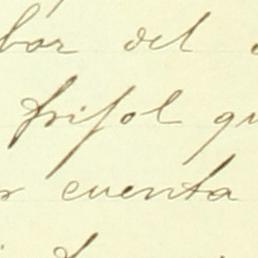 bor del
frisol qu
cuenta